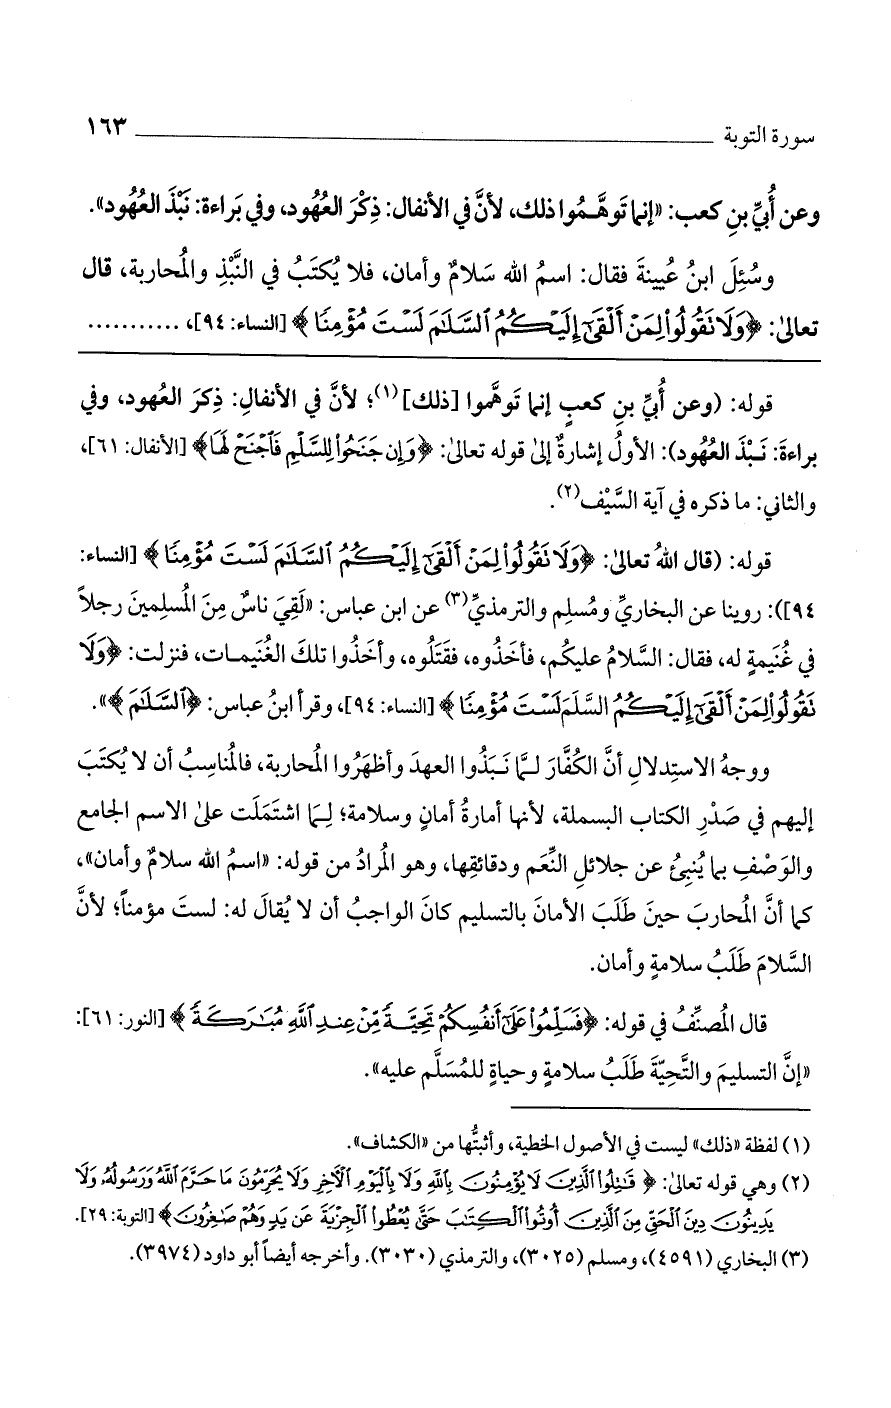 سورة التوبة ١٦٣
وعن أُبيِّ بنِ كعب: «إنما تَوهَّمُوا ذلك، لأنَّ في الأنفال: ذِكْرَ العُهُود، وفي بَراءة: نَبْذَ العُهُود».
وسُئِلَ ابنُ عُيينةَ فقال: اسمُ الله سَلامٌ وأمان، فلا يُكتَبُ في النَّبْذِ والمُحاربة، قال
تعالىٰ: ﴿وَلَا نَقُولُوا۟ لِمَنْ أَلْقَىٰٓ إِلَيْكُمُ ٱلسَّلَٰمَ لَسْتَ مُؤْمِنًا﴾ [النساء: ٩٤]، ...........
قوله: (وعن أُبيِّ بنِ كعبٍ إنما تَوهَّموا [ذلك](١)؛ لأنَّ في الأنفالِ: ذِكرَ العُهود، وفي
براءةَ: نَبْذَ العُهُود): الأولُ إشارةٌ إلىٰ قوله تعالىٰ: ﴿وَإِن جَنَحُوا۟ لِلسَّلْمِ فَٱجْنَحْ لَهَا﴾ [الأنفال: ٦١]،
والثاني: ما ذكره في آية السَّيْف(٢).
قوله: (قال اللهُ تعالىٰ: ﴿وَلَا نَقُولُوا۟ لِمَنْ أَلْقَىٰٓ إِلَيْكُمُ ٱلسَّلَٰمَ لَسْتَ مُؤْمِنًا﴾ [النساء:
٩٤]): روينا عن البخاريِّ ومُسلِم والترمذيِّ(٣) عن ابن عباس: «لَقِيَ ناسٌ مِنَ المُسلِمينَ رجلاً
في غُنَيمةٍ له، فقال: السَّلامُ عليكُم، فأخَذُوه، فقَتَلُوه، وأخَذُوا تلكَ الغُنَيمات، فنزلت: ﴿وَلَا
نَقُولُوا۟ لِمَنْ أَلْقَىٰٓ إِلَيْكُمُ السَّلَمَ لَسْتَ مُؤْمِنًا﴾ [النساء: ٩٤]، وقرأ ابنُ عباس: ﴿ٱلسَّلَٰمَ﴾».
ووجهُ الاستِدلالِ أنَّ الكُفَّارَ لـمَّا نَبَذُوا العهدَ وأظهَرُوا المُحاربة، فالمُناسِبُ أن لا يُكتَبَ
إليهم في صَدْرِ الكتاب البسملة، لأنها أمارةُ أمانٍ وسلامة؛ لِمَا اشتَمَلَت علىٰ الاسم الجامع
والوَصْفِ بما يُنبِئُ عن جلائلِ النِّعَم ودقائقِها، وهو المُرادُ من قوله: «اسمُ الله سلامٌ وأمان»،
كما أنَّ المُحاربَ حينَ طَلَبَ الأمانَ بالتسليم كانَ الواجبُ أن لا يُقالَ له: لستَ مؤمناً؛ لأنَّ
السَّلامَ طَلَبُ سلامةٍ وأمان.
قال المُصنِّفُ في قوله: ﴿فَسَلِّمُوا۟ عَلَىٰٓ أَنفُسِكُمْ تَحِيَّةً مِّنْ عِندِ ٱللَّهِ مُبَٰرَكَةً﴾ [النور: ٦١]:
«إنَّ التسليمَ والتَّحِيّةَ طَلَبُ سلامةٍ وحياةٍ للمُسَلَّم عليه».
(١) لفظة «ذلك» ليست في الأصول الخطية، وأثبتُّها من «الكشاف».
(٢) وهي قوله تعالىٰ: ﴿قَٰتِلُوا۟ ٱلَّذِينَ لَا يُؤْمِنُونَ بِٱللَّهِ وَلَا بِٱلْيَوْمِ ٱلْءَاخِرِ وَلَا يُحَرِّمُونَ مَا حَرَّمَ ٱللَّهُ وَرَسُولُهُۥ وَلَا
يَدِينُونَ دِينَ ٱلْحَقِّ مِنَ ٱلَّذِينَ أُوتُوا۟ ٱلْكِتَٰبَ حَتَّىٰ يُعْطُوا۟ ٱلْجِزْيَةَ عَن يَدٍ وَهُمْ صَٰغِرُونَ﴾ [التوبة: ٢٩].
(٣) البخاري (٤٥٩١)، ومسلم (٣٠٢٥)، والترمذي (٣٠٣٠). وأخرجه أيضاً أبو داود (٣٩٧٤).